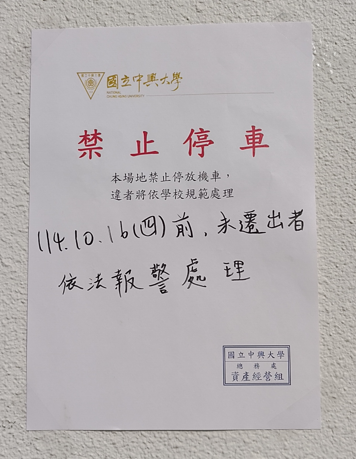 國立中興大學
NATIONAL
CHUNG HSING UNIVERSITY
禁止停車
本場地禁止停放機車，
違者將依學校規範處理
114.10.16(四)前，未遷出者
依法報警處理
國立中興大學
總務處
資產經營組